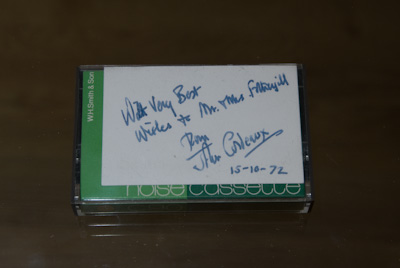 W.H.Smith & Son
With Very Best
Wishes to Mr. & Mrs
From
John
15-10-72
noise cassette